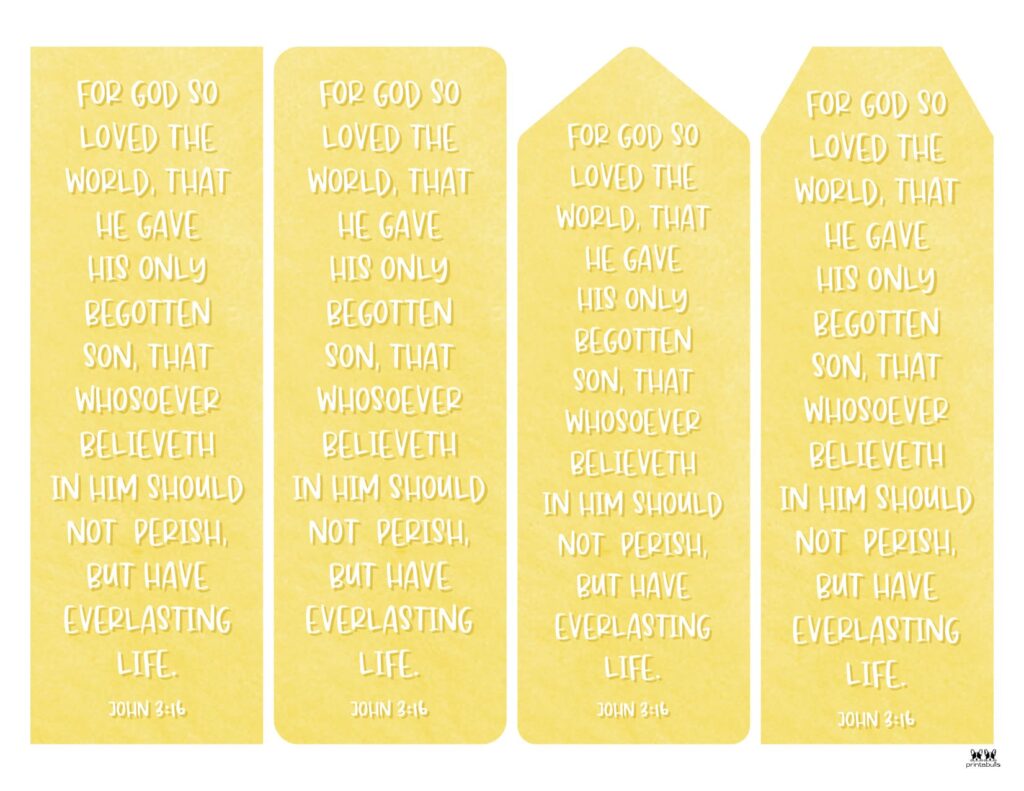 FOR GOD SO
LOVED THE
WORLD, THAT
HE GAVE
HIS ONLY
BEGOTTEN
SON, THAT
WHOSOEVER
BELIEVETH
IN HIM SHOULD
NOT PERISH,
BUT HAVE
EVERLASTING
LIFE.
JOHN 3:16
FOR GOD SO
LOVED THE
WORLD, THAT
HE GAVE
HIS ONLY
BEGOTTEN
SON, THAT
WHOSOEVER
BELIEVETH
IN HIM SHOULD
NOT PERISH,
BUT HAVE
EVERLASTING
LIFE.
JOHN 3:16
FOR GOD SO
LOVED THE
WORLD, THAT
HE GAVE
HIS ONLY
BEGOTTEN
SON, THAT
WHOSOEVER
BELIEVETH
IN HIM SHOULD
NOT PERISH,
BUT HAVE
EVERLASTING
LIFE.
JOHN 3:16
FOR GOD SO
LOVED THE
WORLD, THAT
HE GAVE
HIS ONLY
BEGOTTEN
SON, THAT
WHOSOEVER
BELIEVETH
IN HIM SHOULD
NOT PERISH,
BUT HAVE
EVERLASTING
LIFE.
JOHN 3:16
printabulls